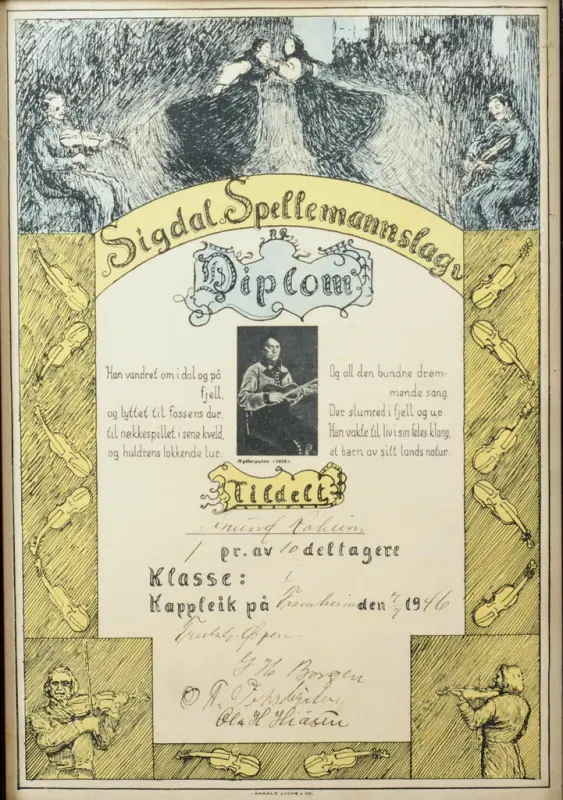 Sigdal Spellemannslag
Diplom
Han vandret om i dal og på
fjell,
og lyttet til fossens dur,
til nøkkespillet i sene kveld,
og huldrens lokkende lur.
Og all den bundne drøm-
mende sang,
Der slumred i fjell og ur.
Han vakte til liv i sin feles klang,
et barn av sitt lands natur.
Tildelt
1 pr. av 10 deltagere
Klasse: 1
Kappleik på Framheim den 7/7 1946
G H Borgen
Ola H Hiåsen
HARALD LYCHE & CO.